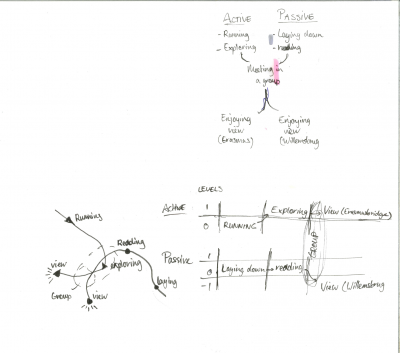 ACTIVE PASSIVE
- Running - Laying down
- Exploring - reading
Meeting in
a group
Enjoying Enjoying
view view
(Erasmus) (Willemsbrug
LEVELS
ACTIVE 1 Exploring View (Erasmusbridge)
0 RUNNING
GROUP
Passive 1
0 Laying down reading
-1 View (Willemsbrug
Running
Reading
view exploring
Group laying
view